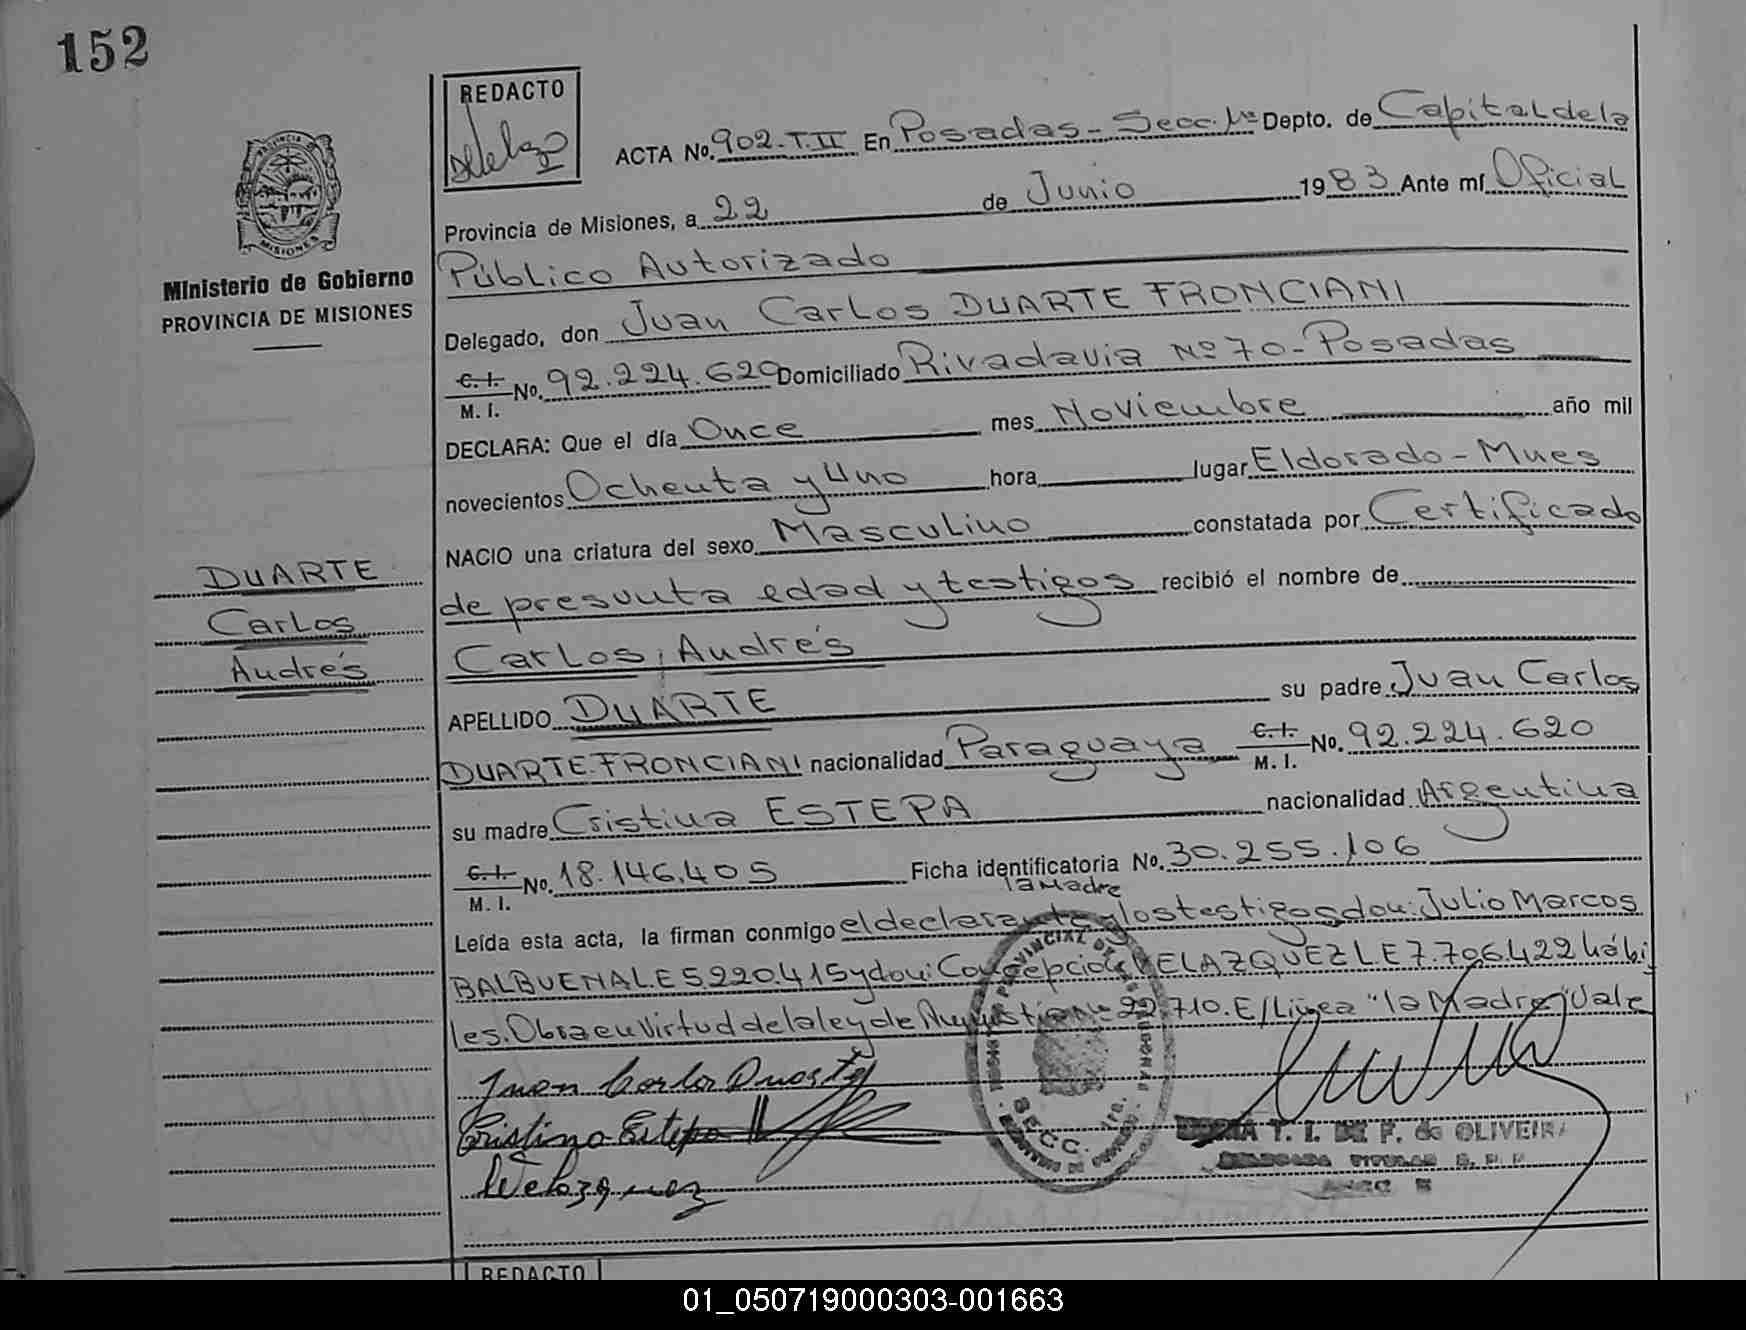 152
REDACTO
ACTA No. 902-T.II En Posadas - Secc. 1ra Depto. de Capital de la
Provincia de Misiones, a 22 de Junio 1983 Ante mí Oficial
Ministerio de Gobierno
PROVINCIA DE MISIONES
Público Autorizado
Delegado, don Juan Carlos DUARTE FRONCIANI
C.I. M.I. No. 92.224.620 Domiciliado Rivadavia Nº 70 - Posadas
DECLARA: Que el día Once mes Noviembre año mil
novecientos Ochenta y Uno hora lugar Eldorado - Mnes
NACIO una criatura del sexo Masculino constatada por Certificado
de presunta edad y testigos recibió el nombre de
DUARTE
Carlos
Andrés
Carlos Andrés
APELLIDO DUARTE su padre Juan Carlos
DUARTE FRONCIANI nacionalidad Paraguaya C.I. M.I. No. 92.224.620
su madre Cristina ESTEPA nacionalidad Argentina
C.I. M.I. No. 18.146.405 Ficha identificatoria No. 30.255.106
la Madre
Leída esta acta, la firman conmigo el declarante y los testigos don: Julio Marcos
BALBUENA L.E 5.220.415 y don: Concepción VELAZQUEZ L.E 7.706.422 hábi
les. Obra en virtud de la ley de Amnistía Nº 22.710. E/Linea "la Madre" Vale
Juan Carlos Duarte
Cristina Estepa
Velazquez
SECC. 1ra.
T. I. DE F. de OLIVEIRA
REDACTO
01_050719000303-001663